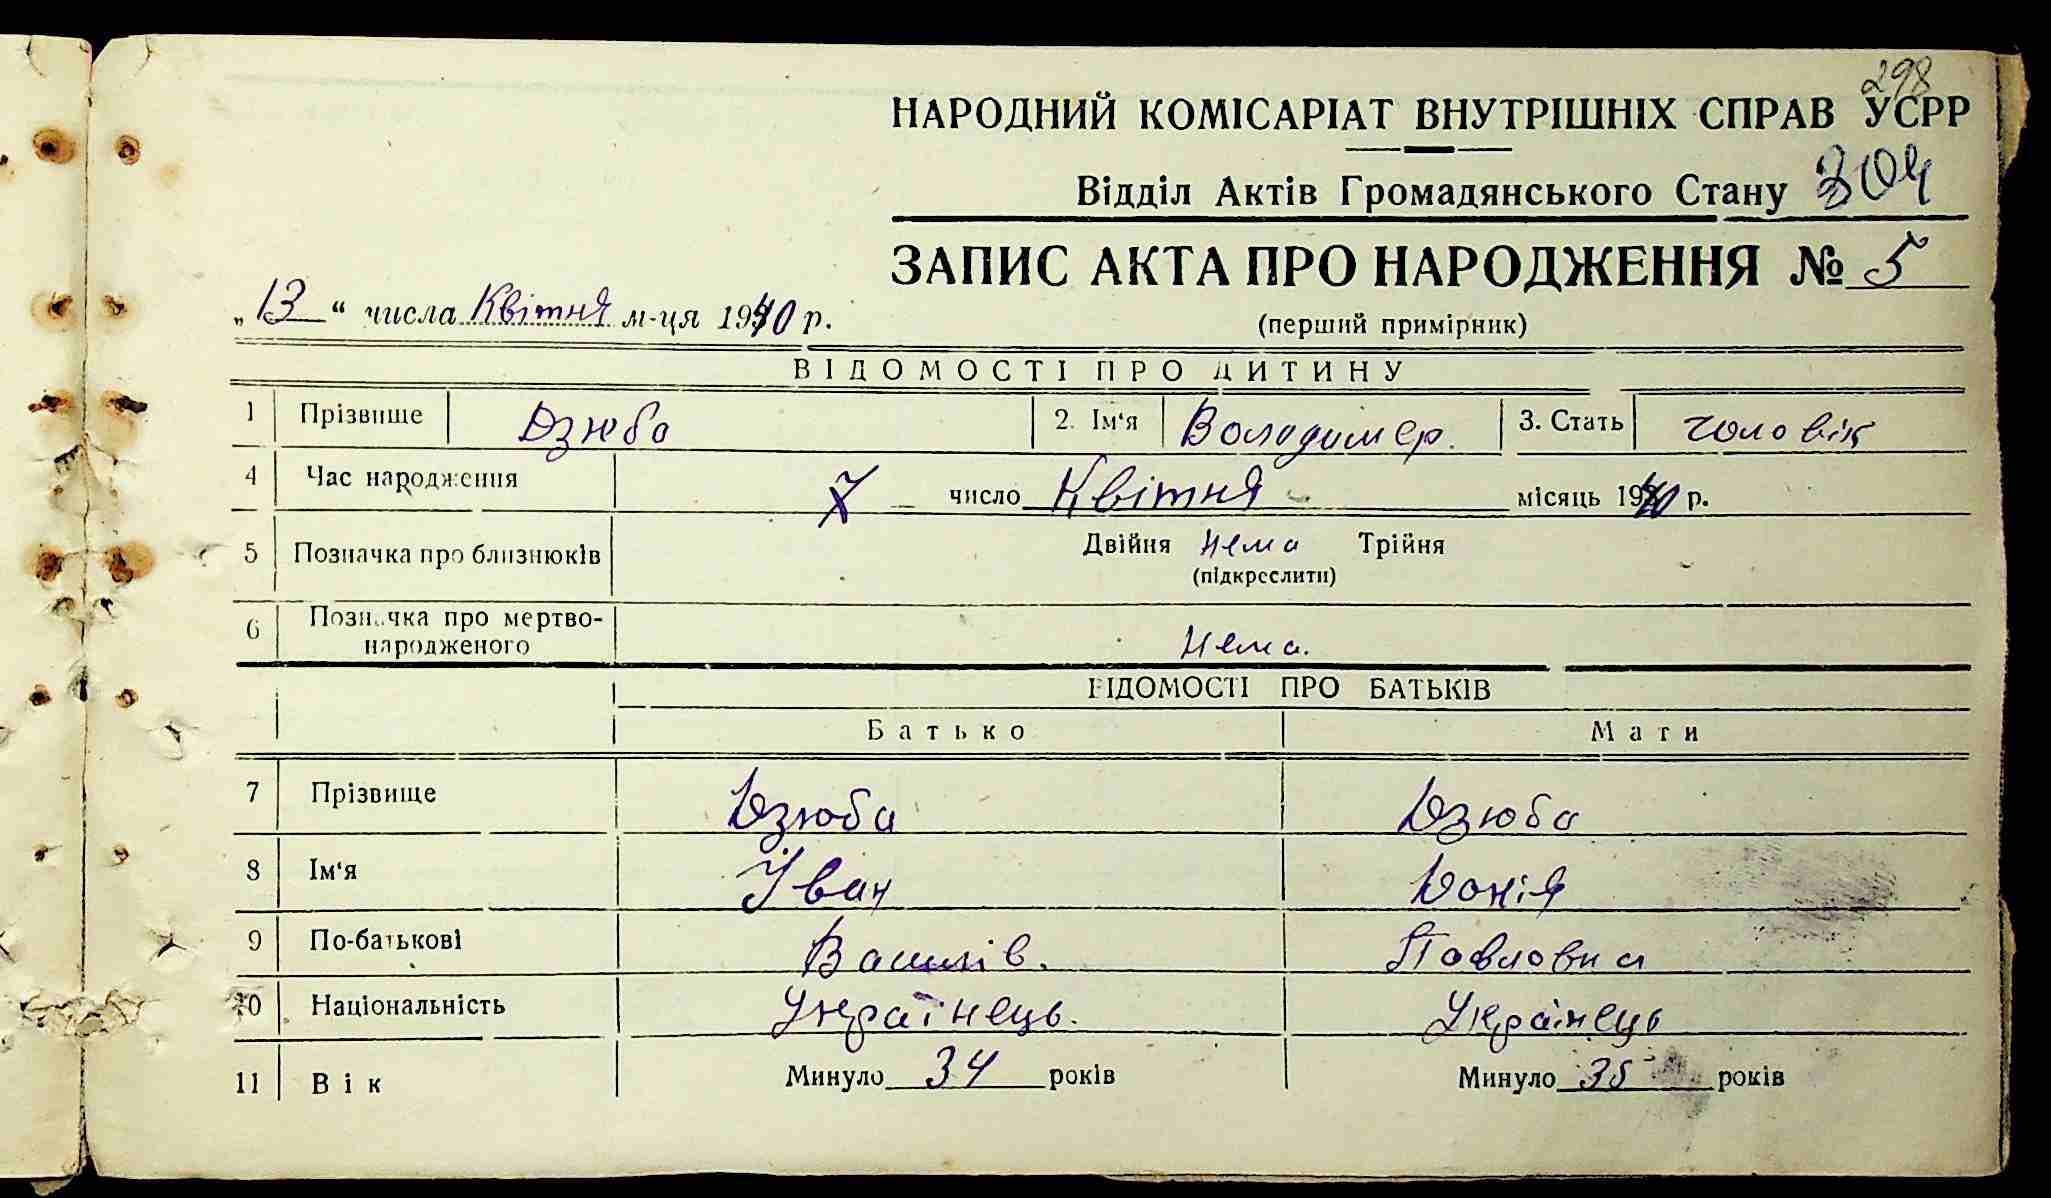 298
НАРОДНИЙ КОМІСАРІАТ ВНУТРІШНІХ СПРАВ УСРР
Відділ Актів Громадянського Стану 304
ЗАПИС АКТА ПРО НАРОДЖЕННЯ № 5
„13“ числа Квітня м-ця 1940 р.
(перший примірник)
ВІДОМОСТІ ПРО ДИТИНУ
1 Прізвище Дзюба 2. Ім‘я Володимер. 3. Стать чоловік
4 Час народження 7 число Квітня місяць 1940 р.
5 Позначка про близнюків Двійня нема Трійня
(підкреслити)
6 Позначка про мертво-
народженого нема.
ВІДОМОСТІ ПРО БАТЬКІВ
Батько Мати
7 Прізвище Дзюба Дзюба
8 Ім‘я Іван Донія
9 По-батькові Василів. Павловна
10 Національність Українець. Українець
11 Вік Минуло 34 років Минуло 35 років